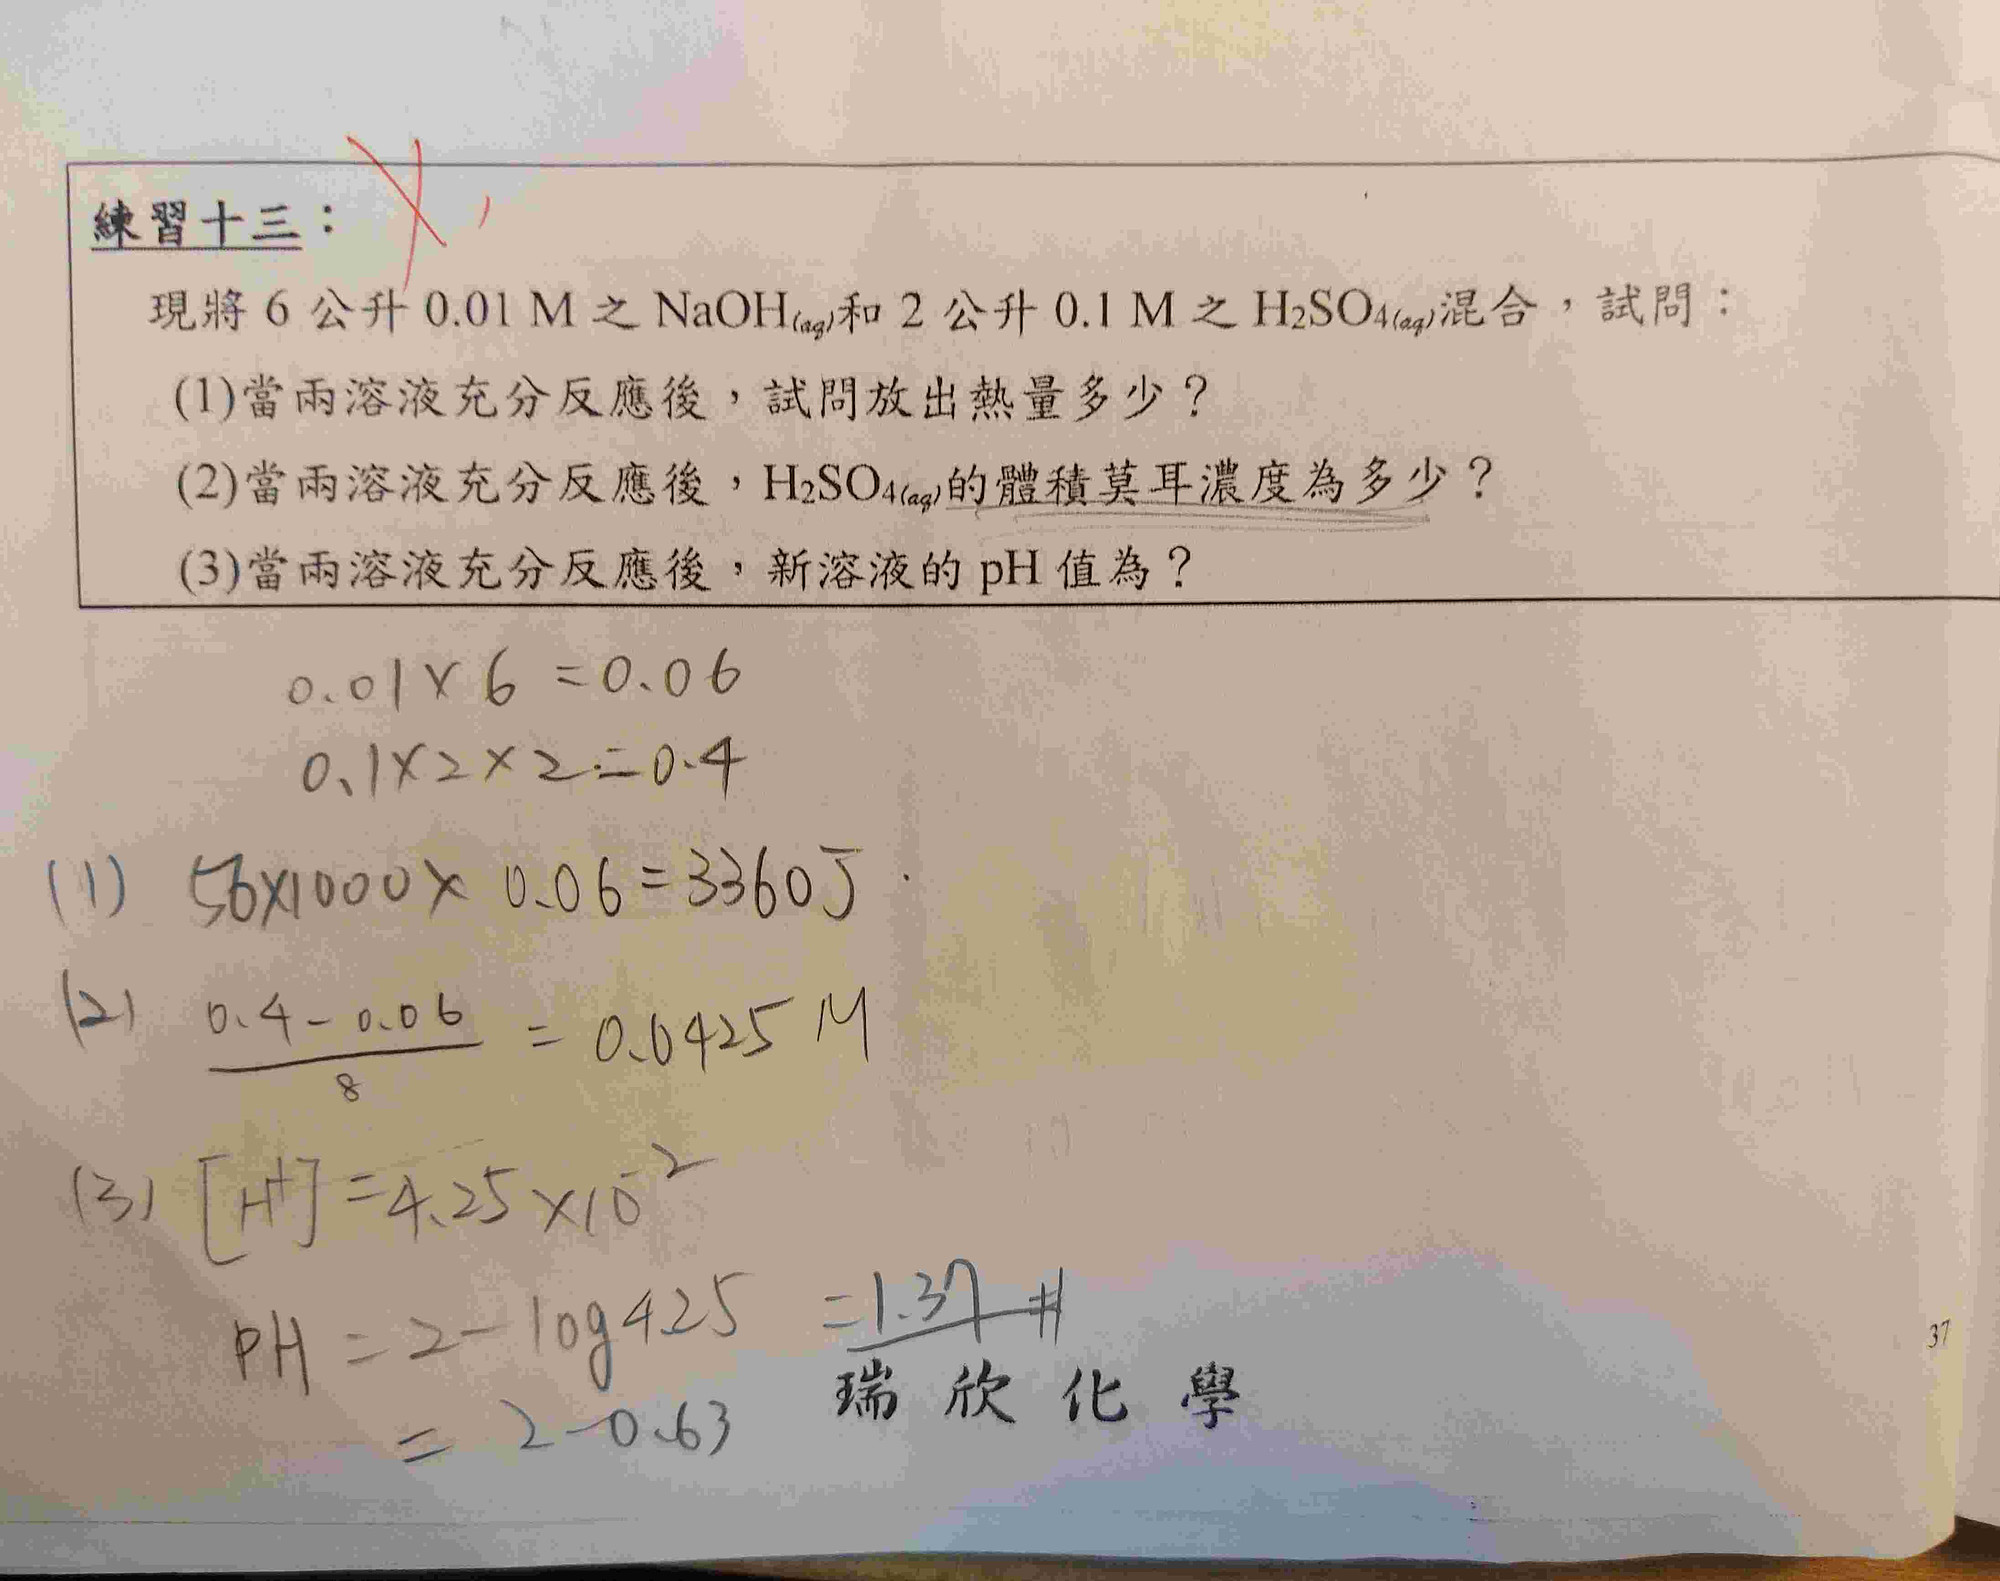 練習十三：
現將 6 公升 0.01 M 之 NaOH(aq)和 2 公升 0.1 M 之 H2SO4(aq)混合，試問：
(1)當兩溶液充分反應後，試問放出熱量多少？
(2)當兩溶液充分反應後，H2SO4(aq)的體積莫耳濃度為多少？
(3)當兩溶液充分反應後，新溶液的 pH 值為？
0.01×6 =0.06
0.1×2×2=0.4
(1) 56×1000× 0.06=3360J
(2) 0.4-0.06
8
= 0.0425 M
(3) [H+]=4.25×10-2
PH =2-log4.25 =1.37 #
= 2-0.63
瑞欣化學
37